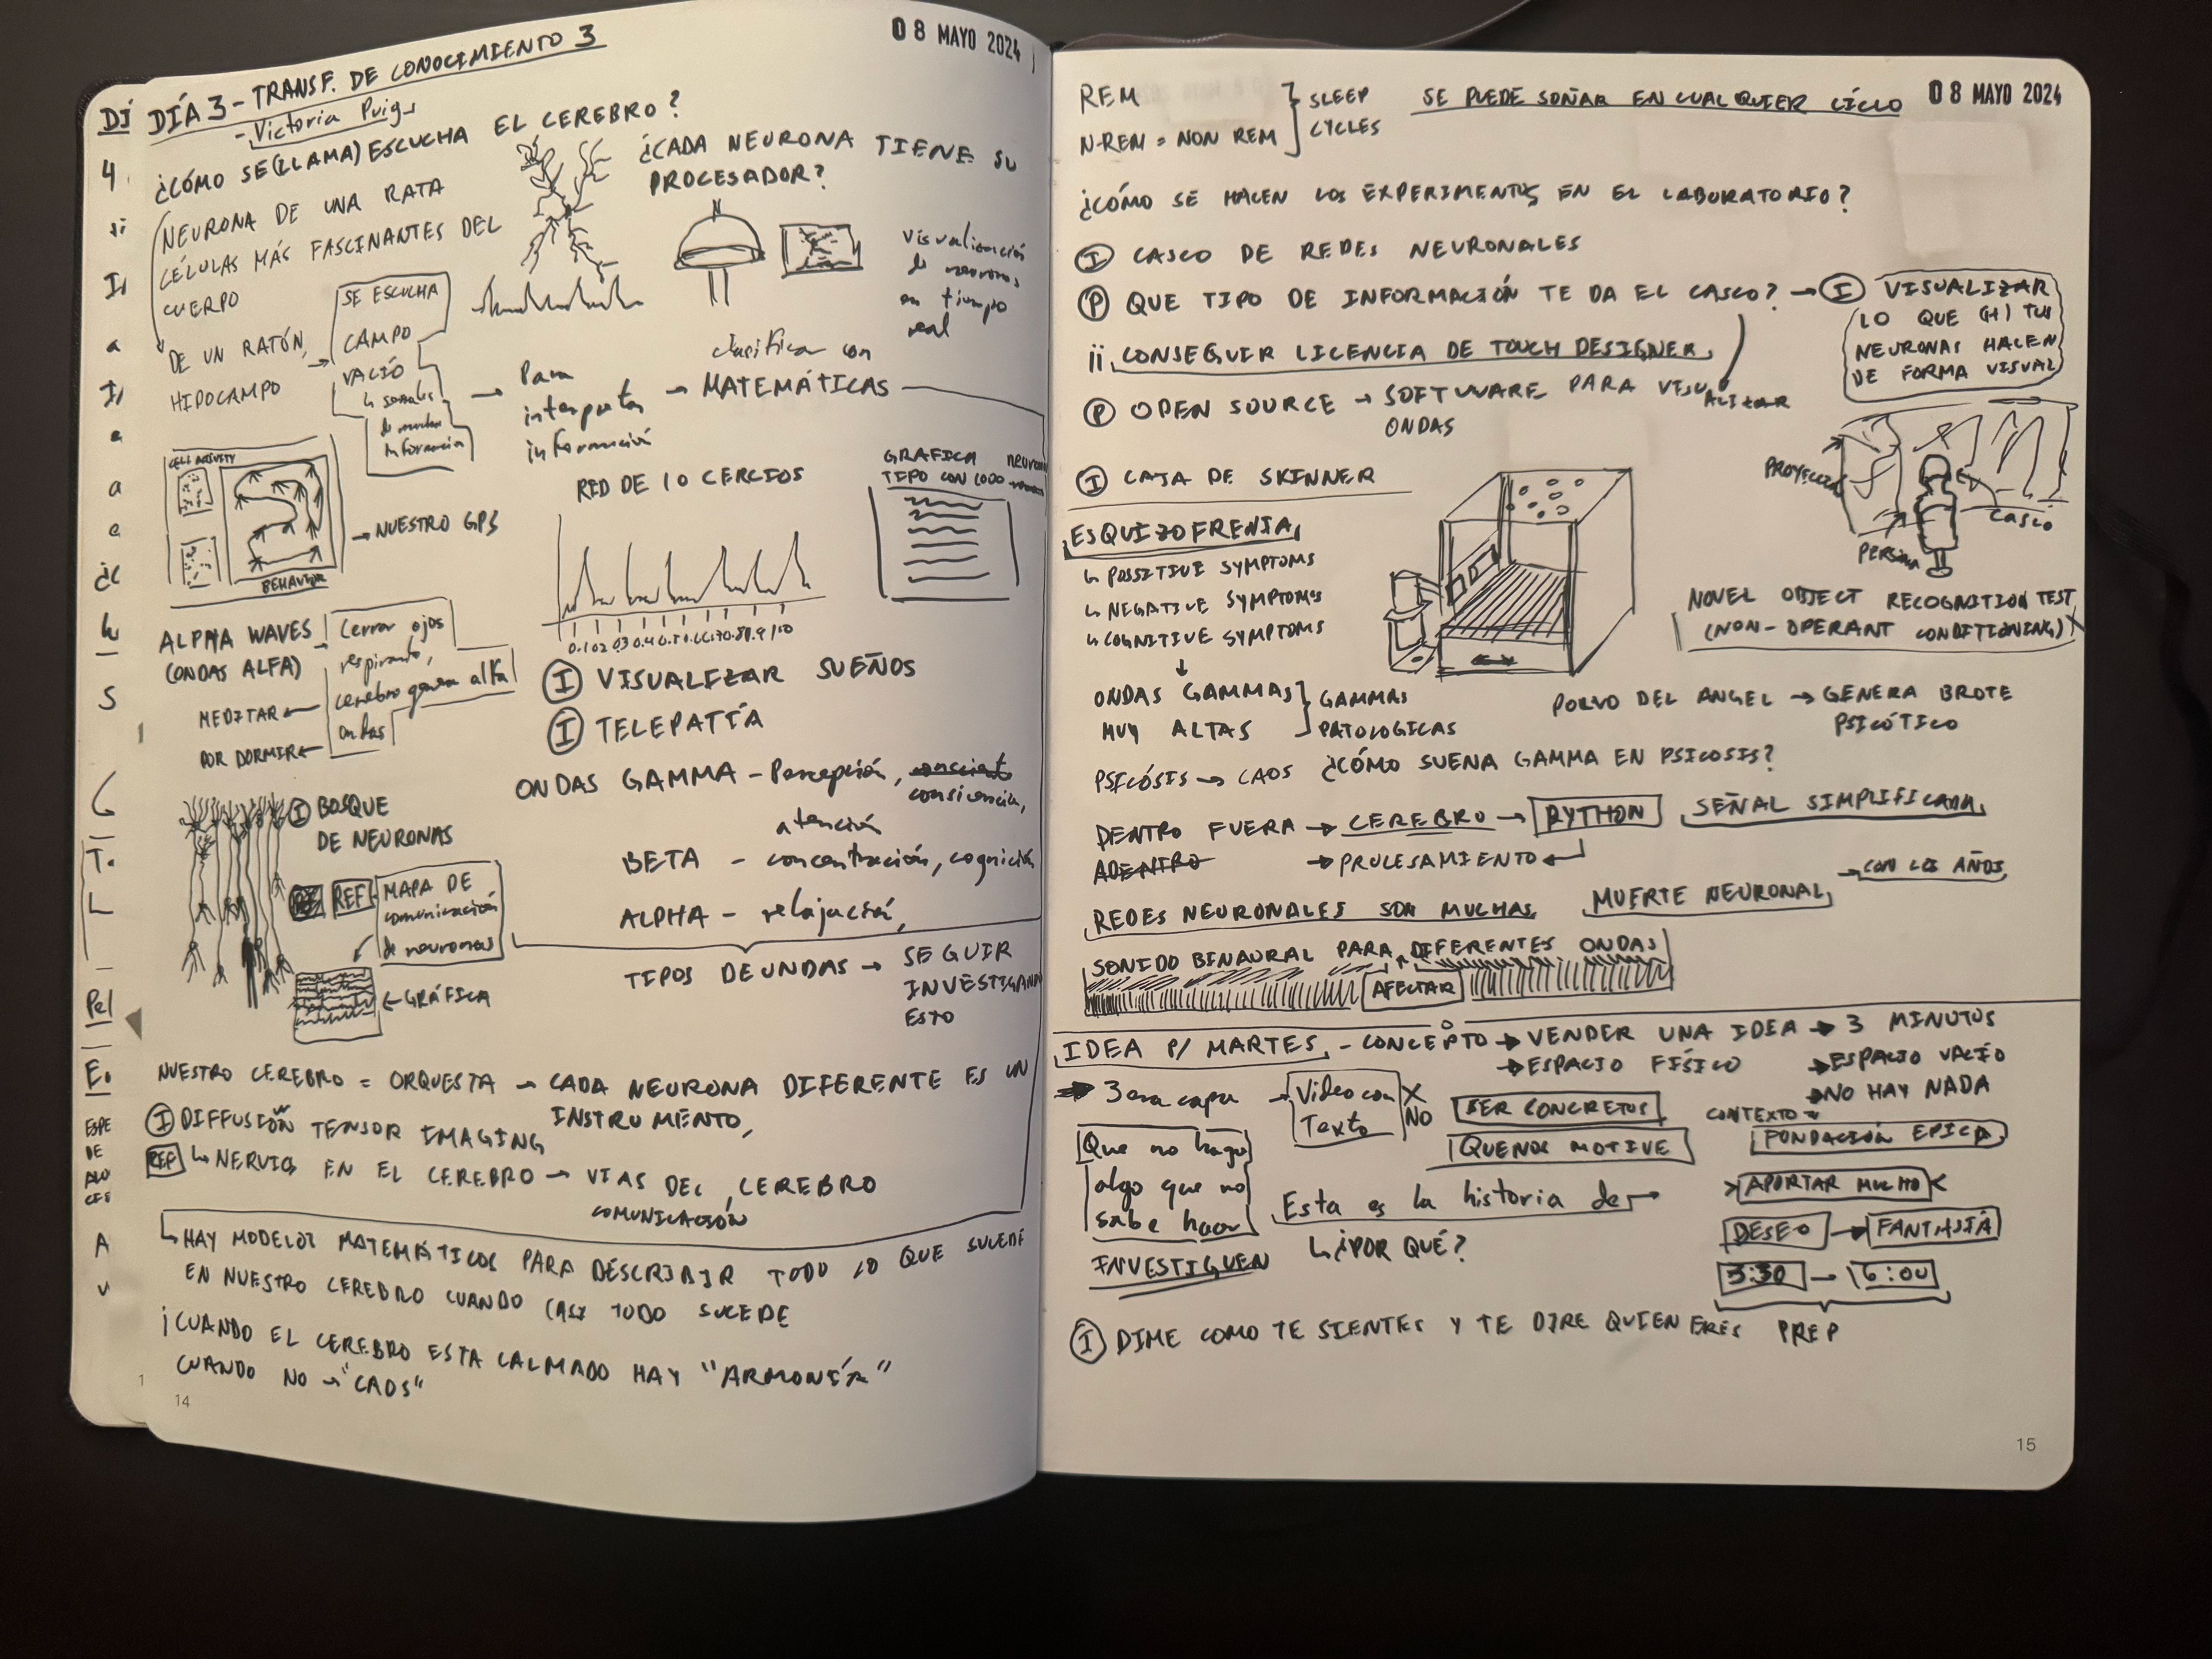 DÍA 3 - TRANSF. DE CONOCIMIENTO 3
08 MAYO 2024
- Victoria Puig
¿CÓMO SE (LLAMA) ESCUCHA EL CEREBRO?
NEURONA DE UNA RATA
CÉLULAS MÁS FASCINANTES DEL
CUERPO
DE UN RATÓN,
HIPOCAMPO
SE ESCUCHA
CAMPO
VACÍO
↳ sonidos
de mucha
información
→ Para
interpretar
información
→ MATEMÁTICAS
clasifica con
¿CADA NEURONA TIENE SU
PROCESADOR?
Visualización
de neuronas
en tiempo
real
CELL ACTIVITY
BEHAVIOR
→ NUESTRO GPS
RED DE 10 CERCIOS
0.1 0.2 0.3 0.4 0.5 0.6 0.7 0.8 0.9 1.0
GRAFICA neurona
TIPO CON 1000
ALPHA WAVES
(ONDAS ALFA)
Cerrar ojos
respirando,
cerebro genera alfa
ondas
MEDITAR ←
POR DORMIR ←
(I) VISUALIZAR SUEÑOS
(I) TELEPATÍA
ONDAS GAMMA - Percepción, consciente
consciencia,
atención
BETA - concentración, cognición
ALPHA - relajación,
TIPOS DE ONDAS → SEGUIR
INVESTIGANDO
ESTO
(I) BOSQUE
DE NEURONAS
REF MAPA DE
comunicación
de neuronas
← GRÁFICA
NUESTRO CEREBRO = ORQUESTA → CADA NEURONA DIFERENTE ES UN
INSTRUMENTO,
(I) DIFFUSION TENSOR IMAGING
REF ↳ NERVIOS EN EL CEREBRO → VIAS DEL CEREBRO
COMUNICACIÓN
↳ HAY MODELOS MATEMÁTICOS PARA DESCRIBIR TODO LO QUE SUCEDE
EN NUESTRO CEREBRO CUANDO CASI TODO SUCEDE
¡CUANDO EL CEREBRO ESTA CALMADO HAY "ARMONÍA"
CUANDO NO → "CAOS"
14
REM
N-REM = NON REM
SLEEP
CYCLES
SE PUEDE SOÑAR EN CUALQUIER CÍCLO
08 MAYO 2024
¿CÓMO SE HACEN LOS EXPERIMENTOS EN EL LABORATORIO?
(I) CASCO DE REDES NEURONALES
(P) QUE TIPO DE INFORMACIÓN TE DA EL CASCO? → (I) VISUALIZAR
LO QUE TUS
NEURONAS HACEN
DE FORMA VISUAL
¡¡ CONSEGUIR LICENCIA DE TOUCH DESIGNER
(P) OPEN SOURCE → SOFTWARE PARA VISUALIZAR
ONDAS
(I) CAJA DE SKINNER
PROYECCIÓN
CASCO
PERSONA
ESQUIZOFRENIA
↳ POSSITIVE SYMPTOMS
↳ NEGATIVE SYMPTOMS
↳ COGNITIVE SYMPTOMS
↓
ONDAS GAMMAS
MUY ALTAS
GAMMAS
PATOLOGICAS
NOVEL OBJECT RECOGNITION TEST
(NON-OPERANT CONDITIONING)
POLVO DEL ANGEL → GENERA BROTE
PSICÓTICO
PSICÓSIS → CAOS ¿CÓMO SUENA GAMMA EN PSICOSIS?
DENTRO FUERA → CEREBRO → PYTHON SEÑAL SIMPLIFICADA
ADENTRO → PROCESAMIENTO ←
REDES NEURONALES SON MUCHAS MUERTE NEURONAL → CON LOS AÑOS
SONIDO BINAURAL PARA DIFERENTES ONDAS
AFECTAR
IDEA P/ MARTES - CONCEPTO → VENDER UNA IDEA → 3 MINUTOS
→ ESPACIO FÍSICO → ESPACIO VACÍO
→ NO HAY NADA
→ 3era capa → Video con
Texto
X
NO
SER CONCRETOS
QUE NOS MOTIVE
CONTEXTO
FONDACIÓN EPICA
Que no haga
algo que no
sabe hacer
Esta es la historia de →
↳ ¿POR QUÉ?
INVESTIGUEN
APORTAR MUCHO
DESEO → FANTASIA
3:30 → 6:00
PREP
(I) DIME COMO TE SIENTES Y TE DIRE QUIEN ERES
15